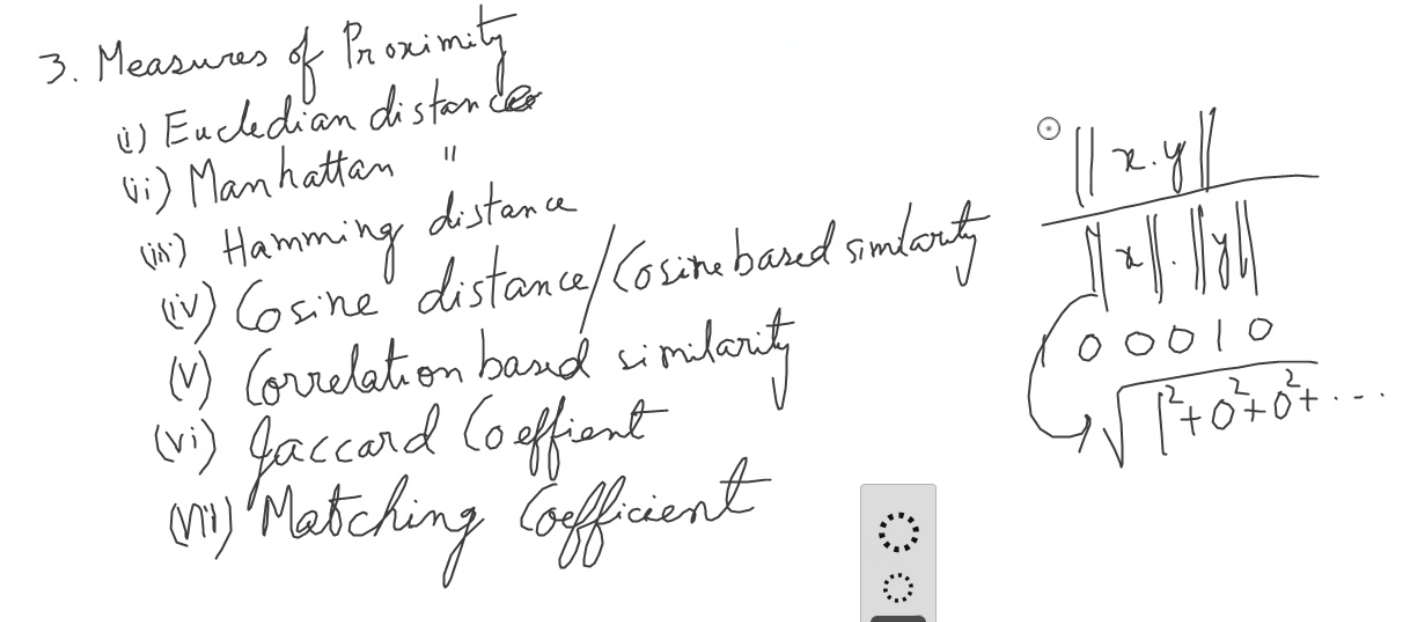 3. Measures of Proximity
(i) Eucledian distance
(ii) Manhattan "
(iii) Hamming distance
(iv) Cosine distance/Cosine based similarity
(v) Correlation based similarity
(vi) Jaccard Coeffient
(vii) Matching Coefficient
||x.y||
||x||.||y||
1 0 0 0 1 0
√1²+0²+0²+...